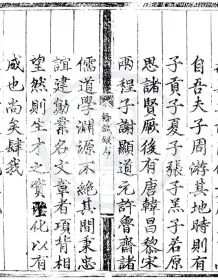 自吾夫子周游其地時則有
子貢子夏子張子羔子若原
思諸賢厥後有唐韓昌黎宋
兩程子謝顯道元許魯齋諸
儒道學淵源不絶其間秉忠
誼建勳業名文章者項背相
望然則生才之實聖化以有
咸也尚矣肆我